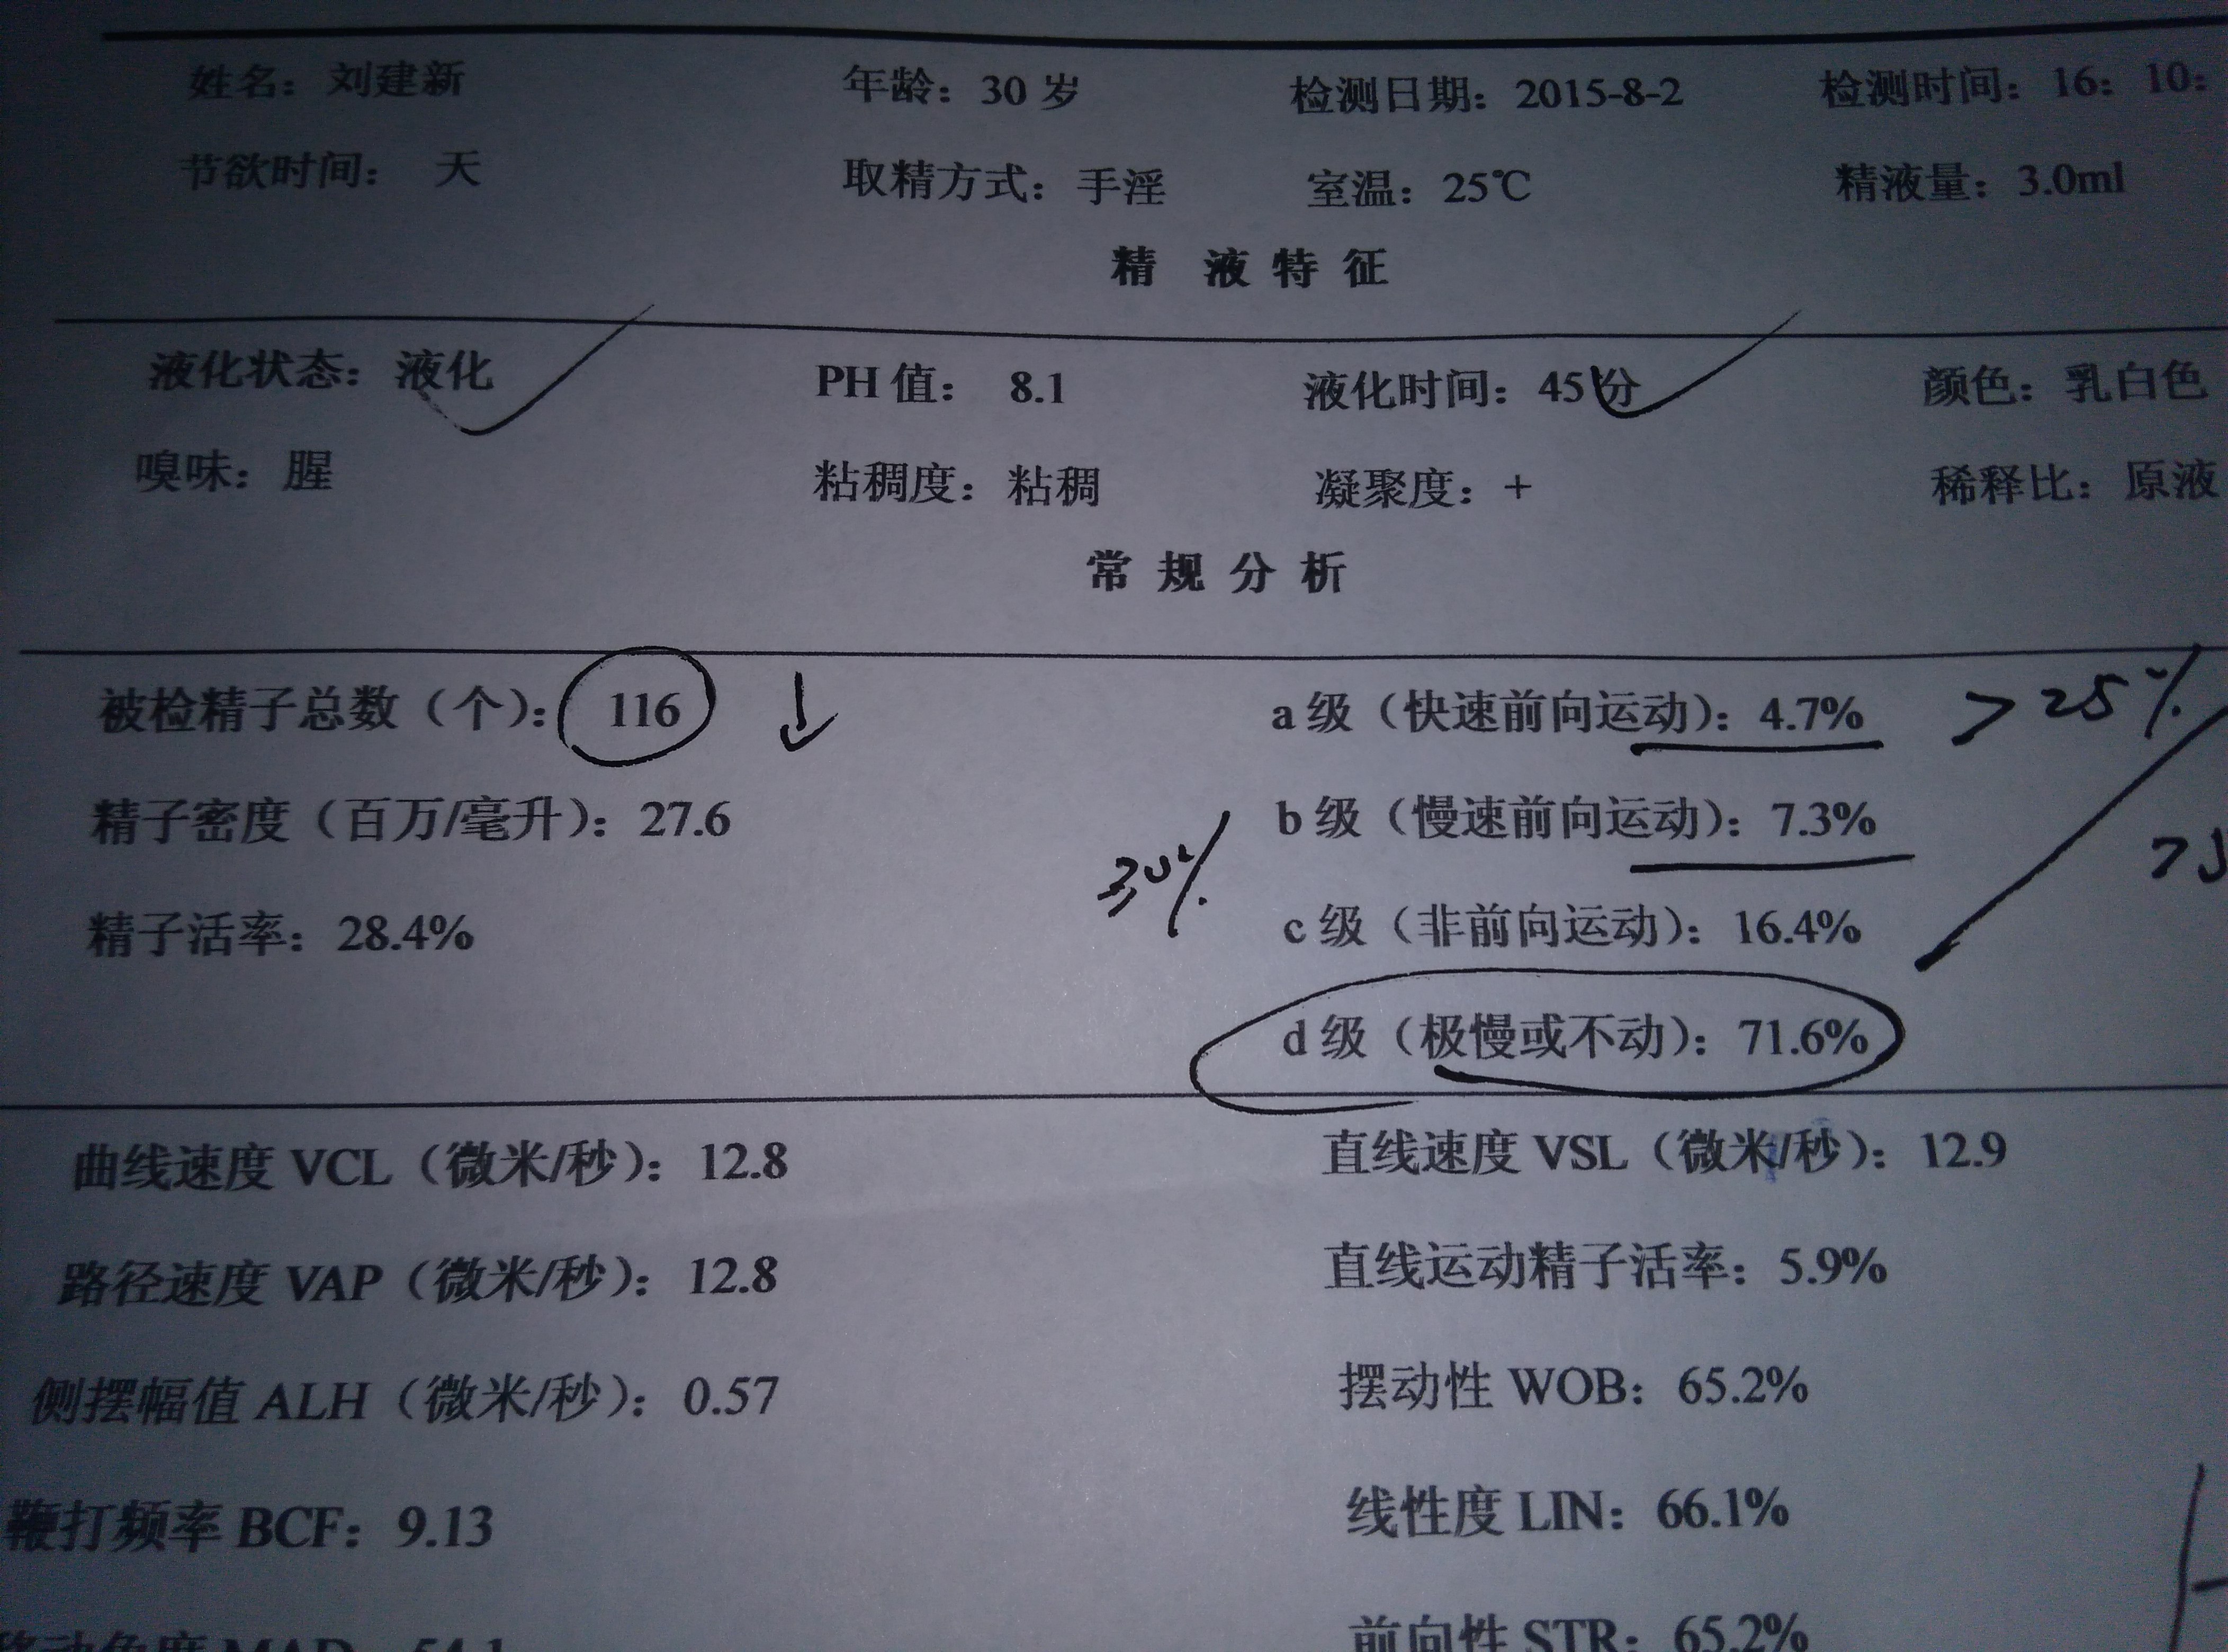 姓名：刘建新 年龄：30 岁 检测日期：2015-8-2 检测时间：16：10：
节欲时间： 天 取精方式：手淫 室温：25℃ 精液量：3.0ml
精 液 特 征
液化状态：液化 PH 值： 8.1 液化时间：45 分 颜色：乳白色
嗅味：腥 粘稠度：粘稠 凝聚度：+ 稀释比：原液
常 规 分 析
被检精子总数（个）：116 ↓ a 级（快速前向运动）：4.7% >25%
精子密度（百万/毫升）：27.6 b 级（慢速前向运动）：7.3%
30%
精子活率：28.4% c 级（非前向运动）：16.4%
d 级（极慢或不动）：71.6%
曲线速度 VCL（微米/秒）：12.8 直线速度 VSL（微米/秒）：12.9
路径速度 VAP（微米/秒）：12.8 直线运动精子活率：5.9%
侧摆幅值 ALH（微米/秒）：0.57 摆动性 WOB：65.2%
鞭打频率 BCF：9.13 线性度 LIN：66.1%
移动角度 MAD：54.1 前向性 STR：65.2%